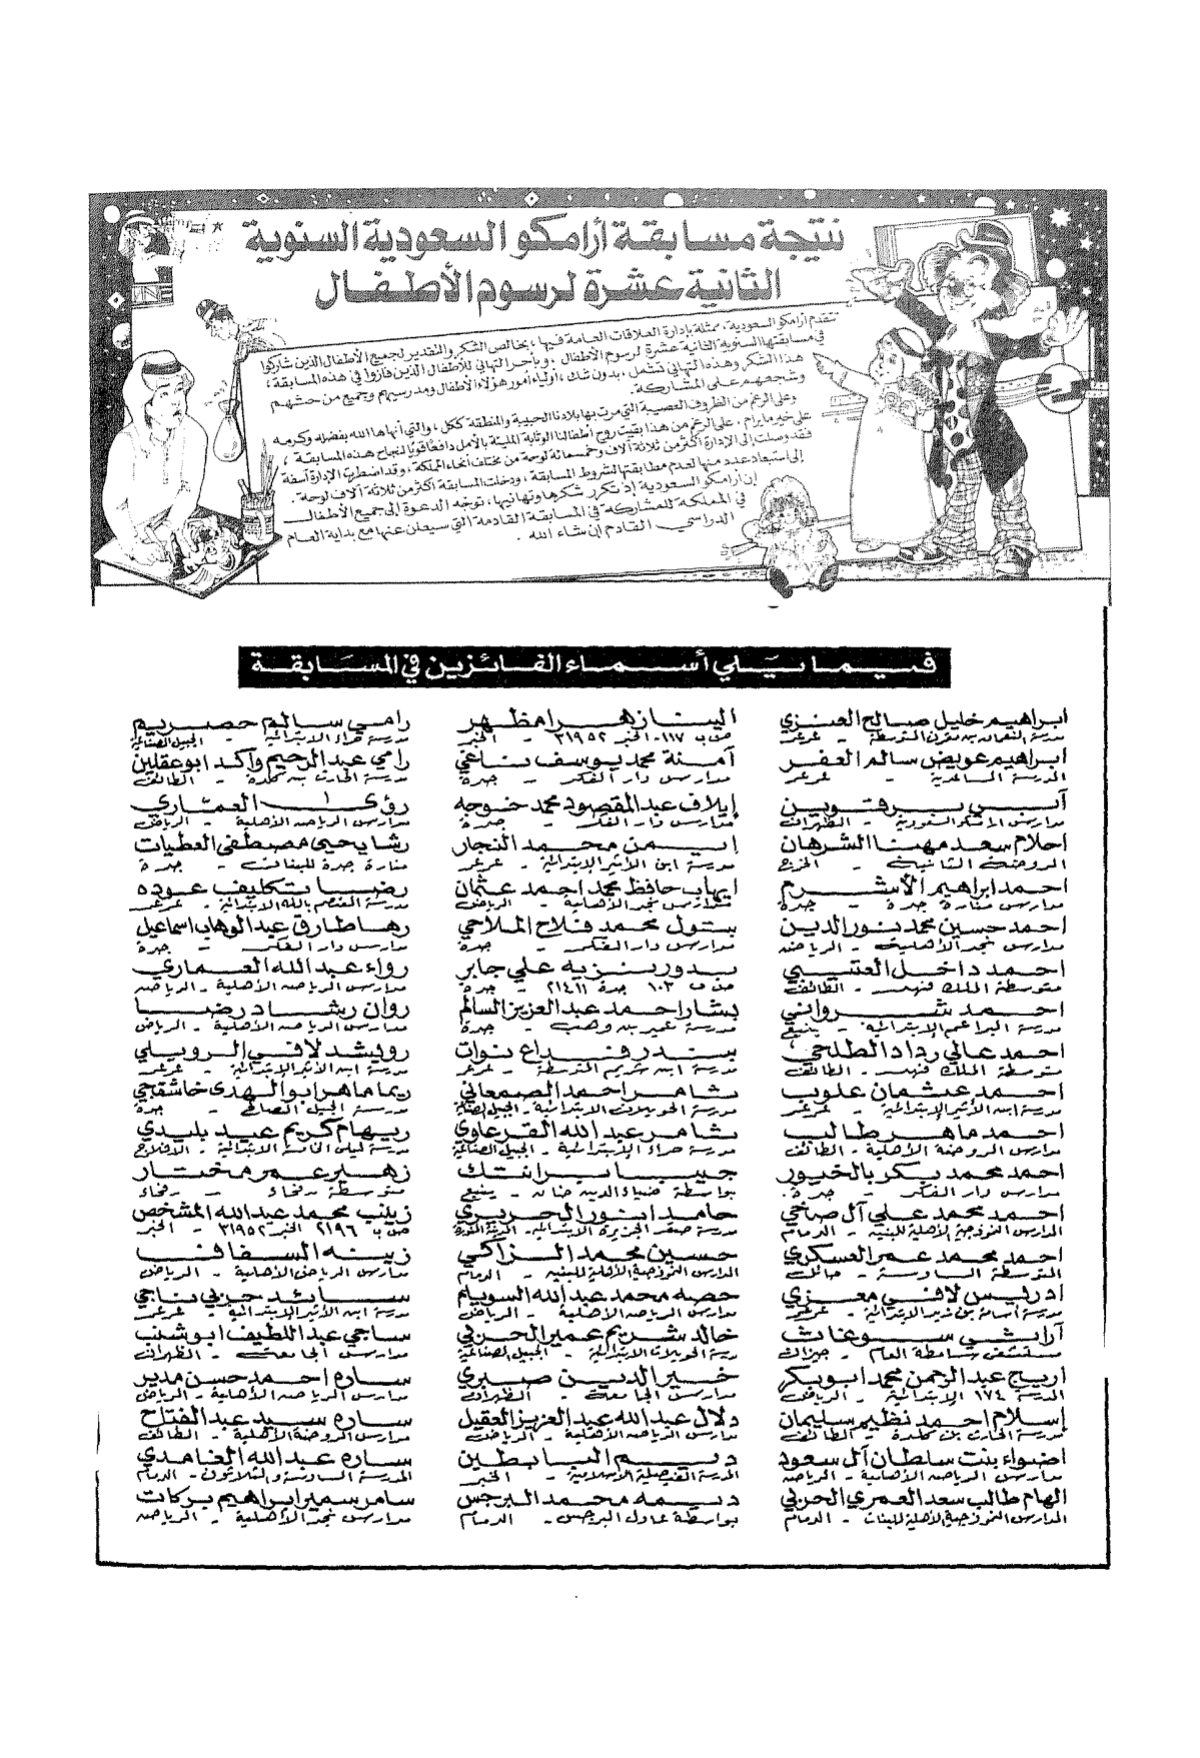 نتيجة مسابقة أرامكو السعودية السنوية
الثانية عشرة لرسوم الأطفال
تتقدم أرامكو السعودية، ممثلة بإدارة العلاقات العامة فيها، بخالص الشكر والتقدير لجميع الأطفال الذين شاركوا
في مسابقتها السنوية الثانية عشرة لرسوم الأطفال، وبأحر التهاني للأطفال الذين فازوا في هذه المسابقة،
هذا الشكر وهذه التهاني تشمل، بدون شك، أولياء أمور هؤلاء الأطفال ومدرسيهم وجميع من حثهم
وشجعهم على المشاركة.
وعلى الرغم من الظروف العصيبة التي مرت بها بلادنا الحبيبة والمنطقة ككل، والتي أنهاها الله بفضله وكرمه
على خير ما يرام، على الرغم من هذا بقيت روح أطفالنا الوثابة المليئة بالأمل دافعًا قويًا لنجاح هذه المسابقة،
فقد وصلت إلى الإدارة أكثر من ثلاثة آلاف وخمسمائة لوحة من مختلف أنحاء المملكة، وقد اضطرت الإدارة آسفة
إلى استبعاد عدد منها لعدم مطابقتها لشروط المسابقة، ودخلت المسابقة أكثر من ثلاثة آلاف لوحة.
إن أرامكو السعودية إذ تكرر شكرها وتهانيها، توجه الدعوة إلى جميع الأطفال
في المملكة للمشاركة في المسابقة القادمة التي سيعلن عنها مع بداية العام
الدراسي القادم إن شاء الله.
فيما يلي أسماء الفائزين في المسابقة
ابراهيم خليل صالح العنزي
مدرسة النعمان بن مقرن المتوسطة - عرعر
ابراهيم عويض سالم العفر
المدرسة السادسة - عرعر
آبي برفتوبين
الظهران
احلام سعد مهنا الشرهان
الروضة الثانية - الخرج
احمد ابراهيم الاشرم
مدارس منارة جدة - جدة
احمد حسين محمد نور الدين
مدارس نجد الأهلية - الرياض
احمد داخل العتيبي
متوسطة الملك فهد - الطائف
احمد شرواني
مدرسة البراعم الإبتدائية - ينبع
احمد عالي رداد الطلحي
متوسطة الملك فهد - الطائف
احمد عثمان علوب
مدرسة ابن الأثير الإبتدائية - عرعر
احمد ماهر طالب
مدارس الروضة الأهلية - الطائف
احمد محمد بكر بالخيور
مدارس دار الفكر - جدة.
احمد محمد علي آل صاخي
المدارس النموذجية الأهلية للبنين - الدمام
احمد محمد عمر العسكري
المتوسطة السادسة - حائل
ادريس لافي معزي
مدرسة أسامة بن زيد الإبتدائية - عرعر
آرايشي سوغات
مستشفى صامطة العام - جيزان
اريج عبد الرحمن محمد ابوبكر
المدرسة ١٧٤ الإبتدائية - الرياض
إسلام احمد نظيم سليمان
مدرسة الحارث بن كلدة - الطائف
اضواء بنت سلطان آل سعود
مدارس الرياض الأهلية - الرياض
الهام طالب سعد العمري الحربي
المدارس النموذجية الأهلية للبنات - الدمام
اليناز هرا مظهر
ص ب ١١٧ - الخبر ٣١٩٥٢ - الخبر
آمنة محمد يوسف ناغي
مدارس دار الفكر - جدة
إيلاف عبد المقصود محمد خوجه
مدارس دار الفكر - جدة
إيمن محمد النجار
مدرسة ابن الأثير الإبتدائية - عرعر
ايهاب حافظ محمد احمد عثمان
مدارس نجد الأهلية - الرياض
بتول محمد فلاح الملاحي
مدارس دار الفكر - جدة
بدور نزيه علي جابر
ص ب ١٠٣ جدة ٢١٤١١ - جدة
بشار احمد عبد العزيز السالم
مدرسة عمير بن وهب - جدة
بندر فداع نوات
مدرسة ابن شريم المتوسطة - عرعر
تامر احمد الصمعاني
مدرسة الحويلات الابتدائية - الجبيل الصناعية
تامر عبد الله القرعاوي
مدرسة حراء الإبتدائية - الجبيل الصناعية
جيبا برانتك
بواسطة ضياء الدين خان - ينبع
حامد انور الحريري
مدرسة صقر الجزيرة الابتدائية - المدينة المنورة
حسين محمد الزاكي
المدارس النموذجية الأهلية للبنين - الدمام
حصه محمد عبد الله السويلم
مدارس الرياض الأهلية - الرياض
خالد شريم عمير الحربي
مدرسة الحويلات الابتدائية - الجبيل الصناعية
خير الدين صبري
مدارس الجامعة - الظهران
دلال عبد الله عبد العزيز العقيل
مدارس الرياض الأهلية - الرياض
ديم البابطين
المدرسة الفيصلية الإسلامية - الخبر
ديمه محمد البرجس
بواسطة عادل البرجس - الدمام
رامي سالم حصريم
مدرسة حراء الابتدائية - الجبيل الصناعية
رامي عبد الرحيم واكد ابو عقلين
مدرسة الحارث بن كلدة - الطائف
رؤى العماري
مدارس الرياض الأهلية - الرياض
رشا يحيى مصطفى العطيات
منارة جدة للبنات - جدة
رضا تكليف عوده
مدرسة المعتصم بالله الابتدائية - عرعر
رها طارق عبد الوهاب اسماعيل
مدارس دار الفكر - جدة
رواء عبد الله العماري
مدارس الرياض الأهلية - الرياض
روان رشاد رضا
مدارس الرياض الأهلية - الرياض
رويشد لافي الرويلي
مدرسة ابن الأثير الإبتدائية - عرعر
ريما ماهر ابو الهدى خاشقجي
جدة
ريهام كريم عبيد بليدي
مدرسة ليلى الخامسة الابتدائية - الافلاج
زهير عمر مختار
متوسطة رفحاء - رفحاء
زينب محمد عبد الله المشخص
ص ب ٢١٩٦ الخبر ٣١٩٥٢ - الخبر
زينه السقاف
مدارس الرياض الأهلية - الرياض
سائد حزبي ناجي
مدرسة ابن الأثير الإبتدائية - عرعر
ساجي عبد اللطيف ابو شنب
مدارس الجامعة - الظهران
ساره احمد حسن مدير
مدارس الرياض الأهلية - الرياض
ساره سيد عبد الفتاح
مدارس الروضة الأهلية - الطائف
ساره عبد الله الغامدي
المدرسة السادسة والثلاثون - الدمام
سامر سمير ابراهيم بركات
مدارس نجد الأهلية - الرياض